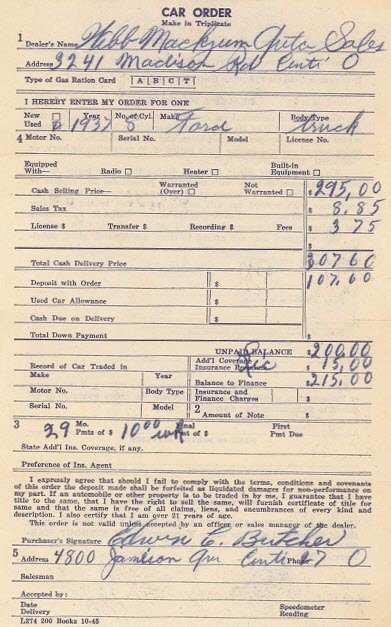 CAR ORDER
Make in Triplicate
1 Dealer's Name Webb Mackzum Auto Sales
Address 3241 Madison Rd Centi O
Type of Gas Ration Card A B C T
I HEREBY ENTER MY ORDER FOR ONE
New Used Year No. of Cyl. Make Body Type
1937 8 Ford truck
4 Motor No. Serial No. Model License No.
Equipped With— Radio Heater Built-in Equipment
Cash Selling Price— Warranted (Over) Not Warranted $ 295,00
Sales Tax $ 8.85
License $ Transfer $ Recording $ Fees $ 3 75
$
Total Cash Delivery Price $ 307 60
Deposit with Order $ 107.60
Used Car Allowance $
Cash Due on Delivery $
Total Down Payment $
UNPAID BALANCE $ 200.00
Record of Car Traded in Add'l Coverage Insurance Lic $ 15,00
Make Year Balance to Finance $ 215,00
Motor No. Body Type Insurance and Finance Charges $
Serial No. Model 2 Amount of Note $
3 29 Mo. Pmts of $ 10 00 wk Final Pmt of $ First Pmt Due
State Add'l Ins. Coverage, if any.
Preference of Ins. Agent
I expressly agree that should I fail to comply with the terms, conditions and covenants
of this order the deposit made shall be forfeited as liquidated damages for non-performance on
my part. If an automobile or other property is to be traded in by me, I guarantee that I have
title to the same, that I have the right to sell the same, will furnish certificate of title for
same and that the same is free of all claims, liens, and encumbrances of every kind and
description. I also certify that I am over 21 years of age.
This order is not valid unless accepted by an officer or sales manager of the dealer.
Purchaser's Signature Edwin C. Butcher
5 Address 4800 Jameson Ave Centi Phone 27 O
Salesman
Accepted by:
Date Delivery Speedometer Reading
L274 200 Books 10-45